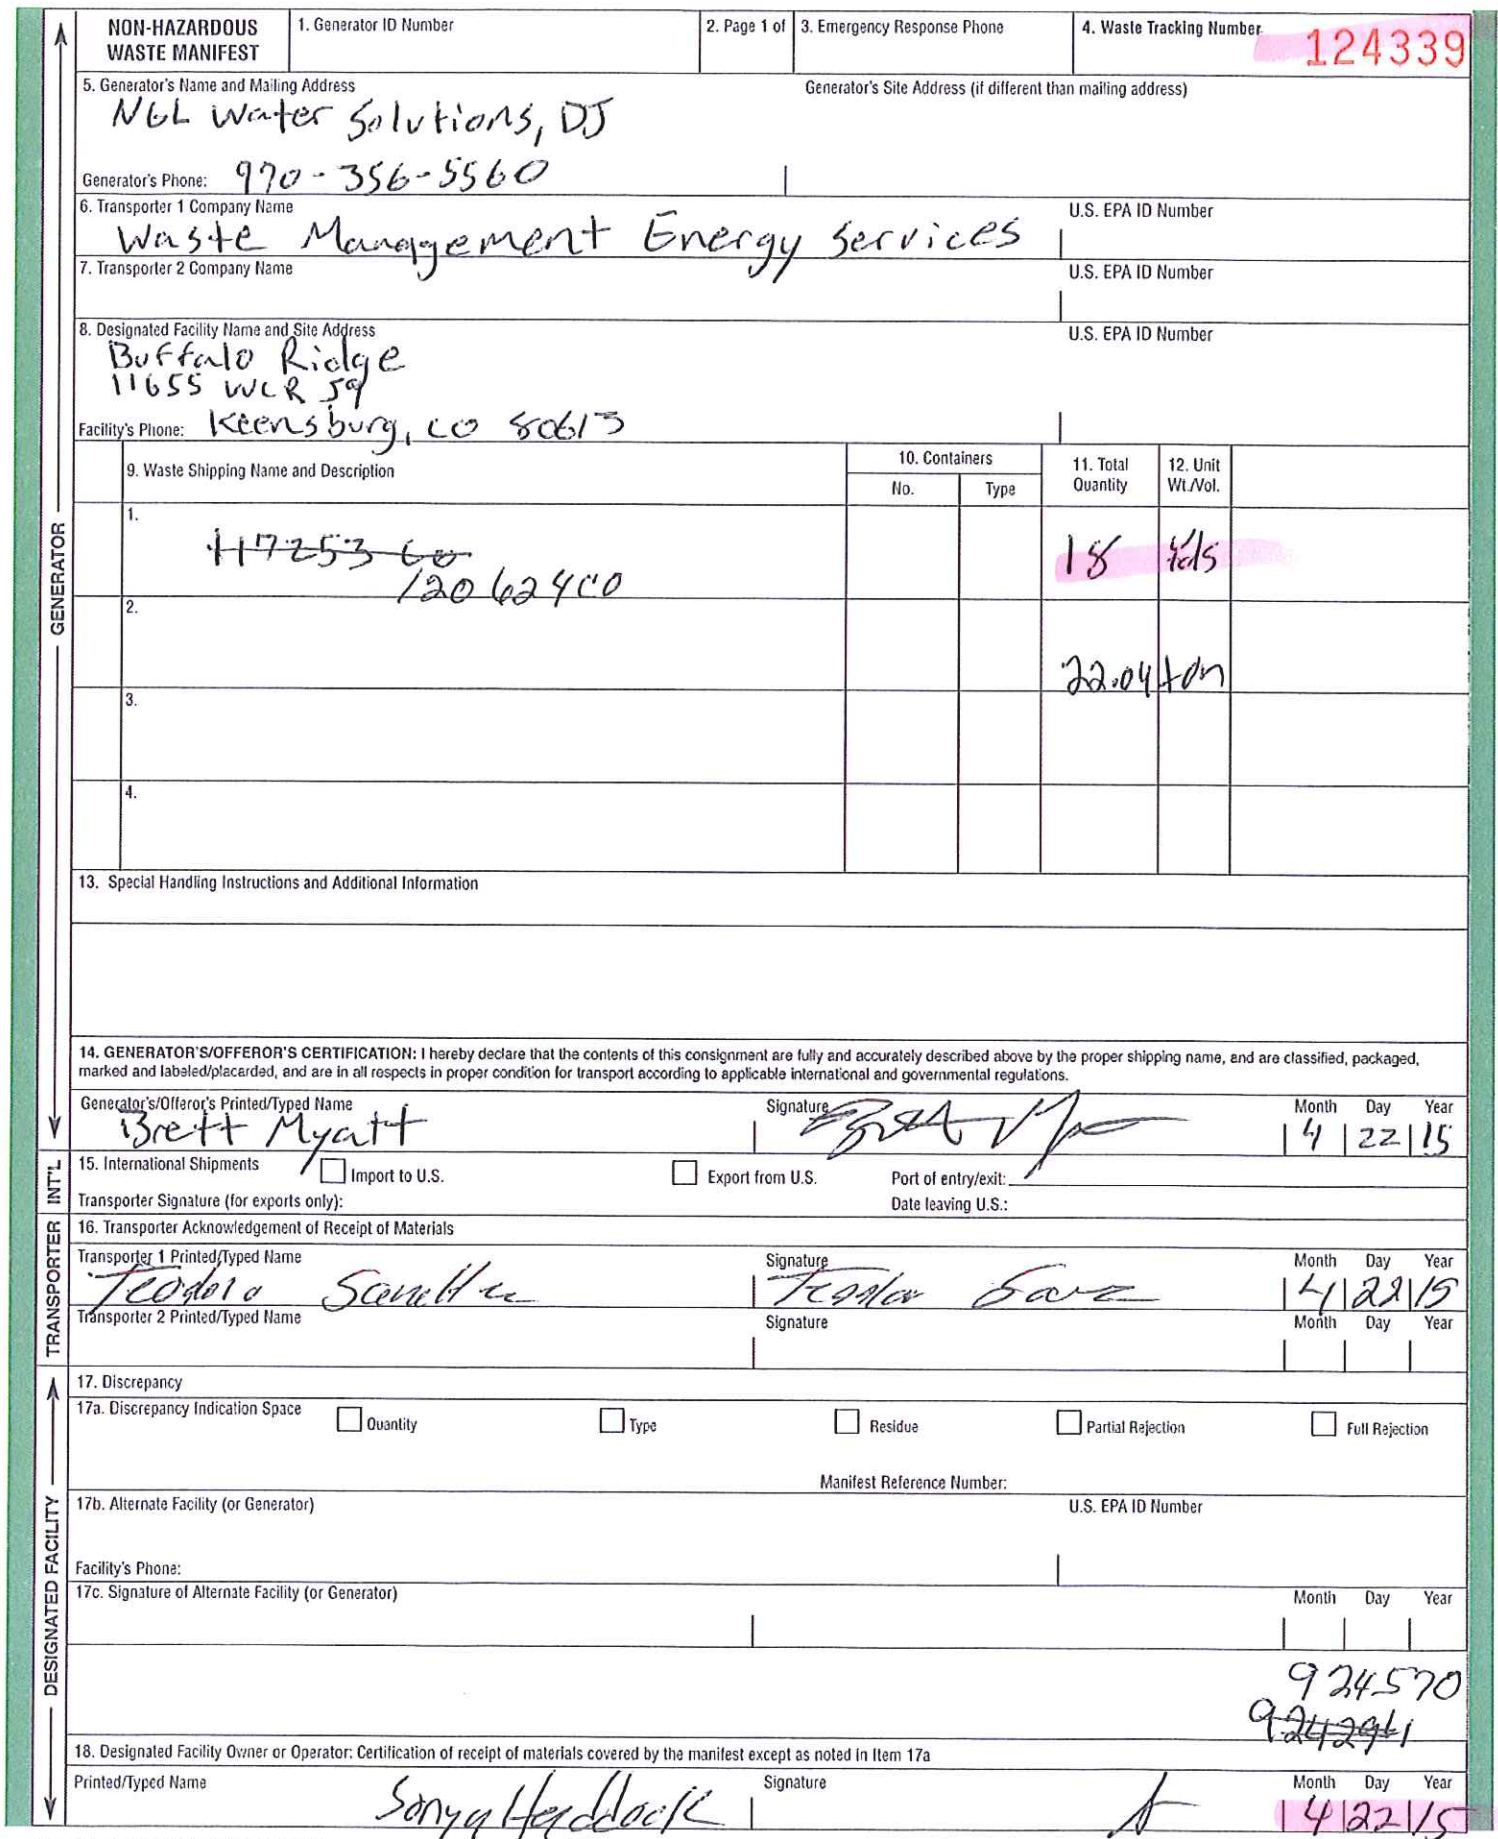 NON-HAZARDOUS WASTE MANIFEST
1. Generator ID Number
2. Page 1 of
3. Emergency Response Phone
4. Waste Tracking Number
124339
5. Generator's Name and Mailing Address
Generator's Site Address (if different than mailing address)
NGL Water Solutions, DJ
Generator's Phone: 970-356-5560
6. Transporter 1 Company Name
U.S. EPA ID Number
Waste Management Energy Services
7. Transporter 2 Company Name
U.S. EPA ID Number
8. Designated Facility Name and Site Address
U.S. EPA ID Number
Buffalo Ridge
11655 WCR 59
Facility's Phone: Keensburg, CO 80613
9. Waste Shipping Name and Description
10. Containers
No.
Type
11. Total Quantity
12. Unit Wt./Vol.
1.
117253 CO
18 Yds
120624CO
2.
22.04 ton
3.
4.
13. Special Handling Instructions and Additional Information
14. GENERATOR'S/OFFEROR'S CERTIFICATION: I hereby declare that the contents of this consignment are fully and accurately described above by the proper shipping name, and are classified, packaged,
marked and labeled/placarded, and are in all respects in proper condition for transport according to applicable international and governmental regulations.
Generator's/Offeror's Printed/Typed Name
Signature
Month Day Year
Brett Myatt
4 22 15
15. International Shipments
Import to U.S.
Export from U.S.
Port of entry/exit:
Transporter Signature (for exports only):
Date leaving U.S.:
16. Transporter Acknowledgement of Receipt of Materials
Transporter 1 Printed/Typed Name
Signature
Month Day Year
Teodoro
4 22 15
Transporter 2 Printed/Typed Name
Signature
Month Day Year
17. Discrepancy
17a. Discrepancy Indication Space
Quantity
Type
Residue
Partial Rejection
Full Rejection
Manifest Reference Number:
17b. Alternate Facility (or Generator)
U.S. EPA ID Number
Facility's Phone:
17c. Signature of Alternate Facility (or Generator)
Month Day Year
924570
18. Designated Facility Owner or Operator: Certification of receipt of materials covered by the manifest except as noted in Item 17a
Printed/Typed Name
Signature
Month Day Year
Sonya Haddock
4 22 15
GENERATOR
INT'L
TRANSPORTER
DESIGNATED FACILITY